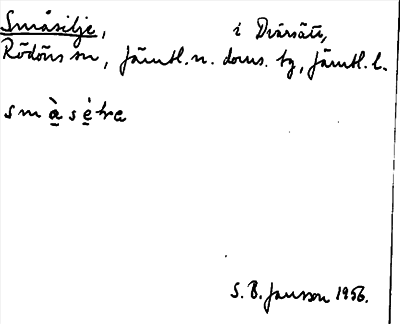 Småsilje, i Dvärsätt,
Rödöns sn, Jämtl. n. doms. tg, Jämtl. l.
s m à̱ s è̱ t r a
S. B. Jansson 1956.